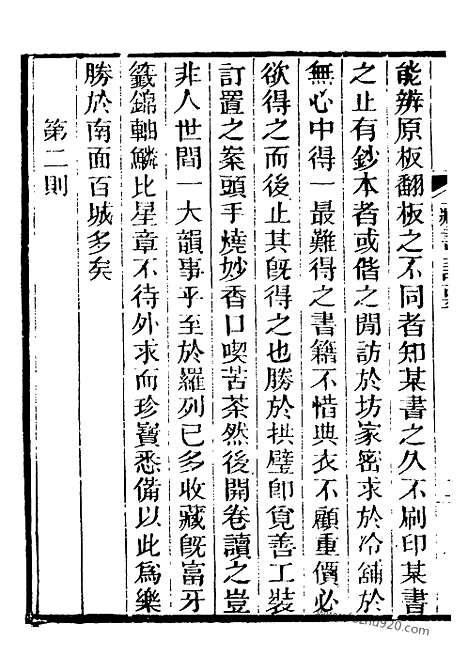 能辨原板翻板之不同者知某書之久不刷印某書
之止有鈔本者或偕之閒訪於坊家密求於冷舖於
無心中得一最難得之書籍不惜典衣不顧重價必
欲得之而後止其旣得之也勝於拱璧即覓善工裝
訂置之案頭手燒妙香口喫苦茶然後開卷讀之豈
非人世間一大韻事乎至於羅列已多收藏旣富牙
籤錦軸鱗比星章不待外求而珍寶悉備以此爲樂
勝於南面百城多矣
第二則